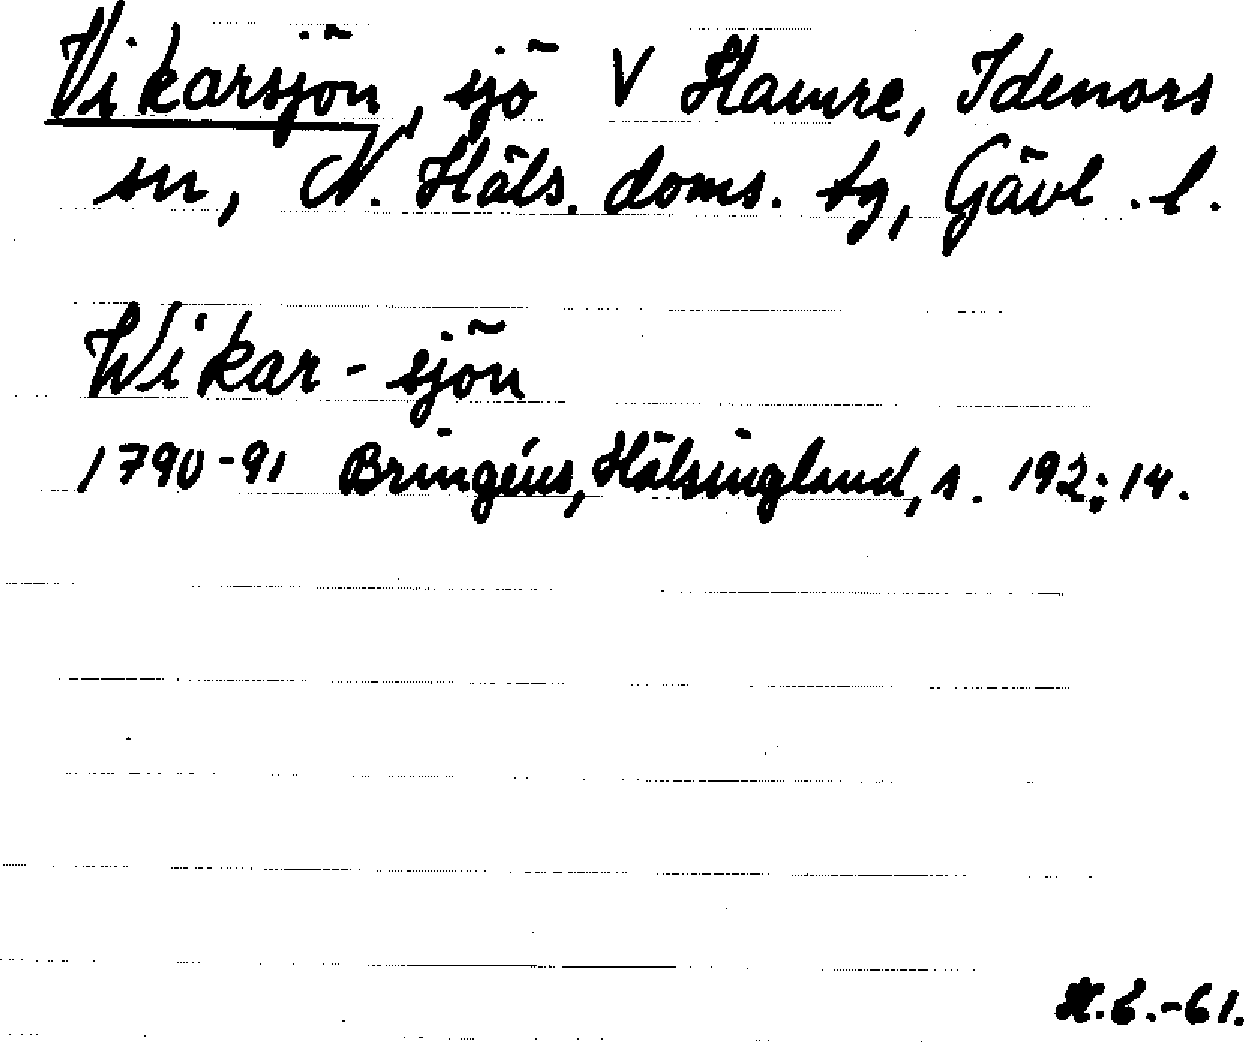 Vikarsjön, sjö V Hamre, Idenors
sn, N. Häls. doms. tg, Gävl. l.
Wikar-sjön
1790-91 Bringéus, Hälsingland, s. 192:14.
-61.